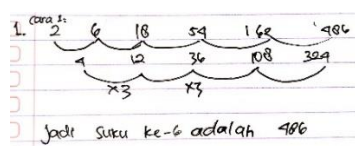 1. cara 1:
2 6 18 54 162 486
4 12 36 108 324
x3 x3
Jadi suku ke-6 adalah 486